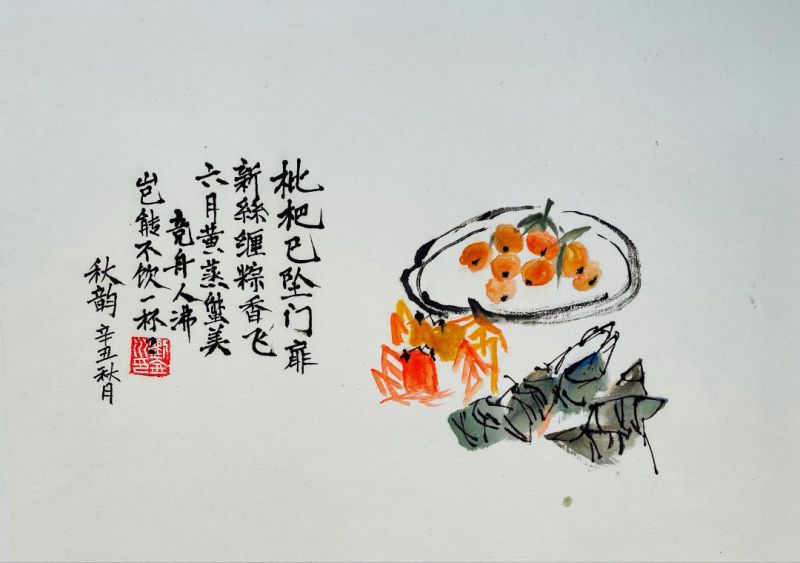 枇杷已坠门扉
新絲缠粽香飞
六月黄蒸蟹美
竞舟人沸
岂能不饮一杯?
秋韵 辛丑秋月